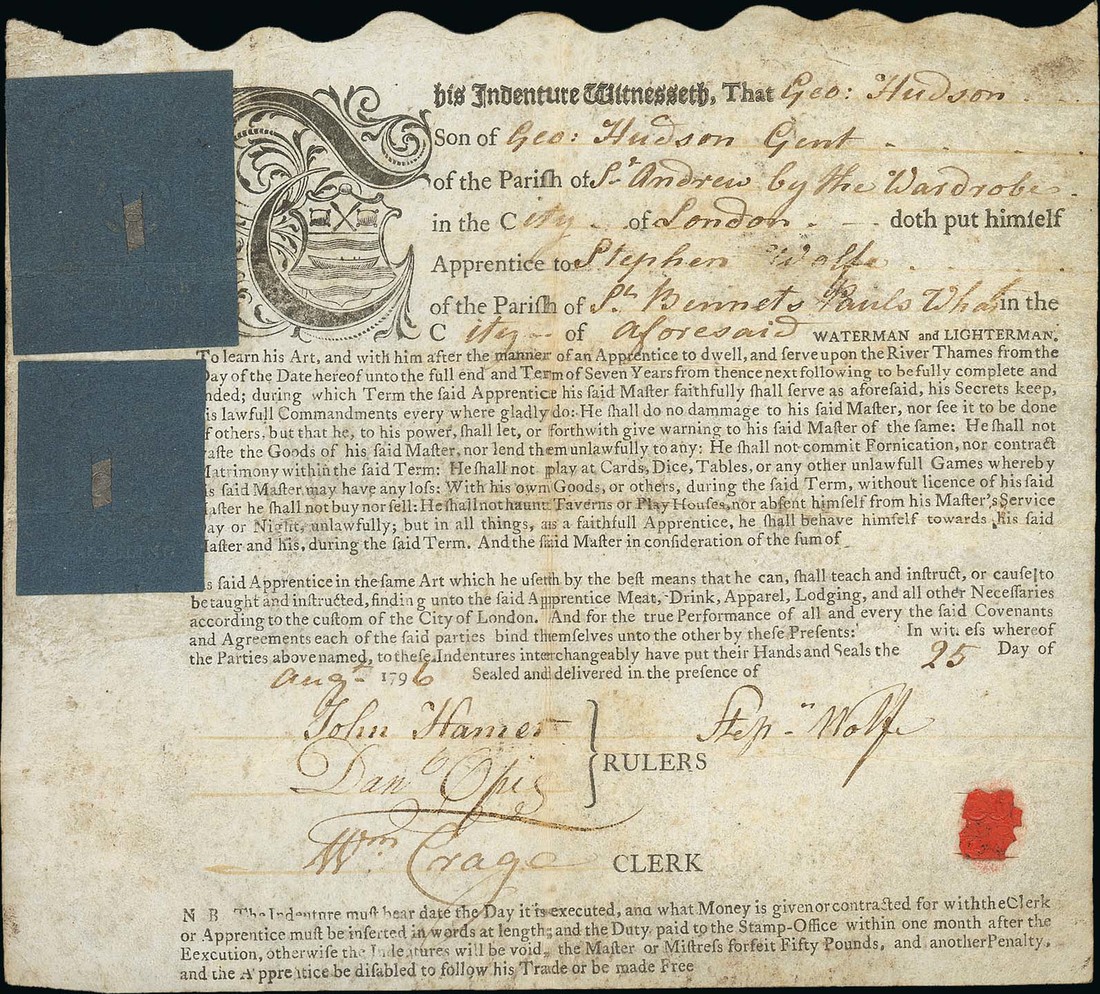 This Indenture Witnesseth, That Geo: Hudson
Son of Geo: Hudson Gent
of the Pariſh of St Andrew by the Wardrobe
in the City of London doth put himſelf
Apprentice to Stephen Wolfe
of the Pariſh of St Bennets Pauls Wharf in the
City of aforesaid WATERMAN and LIGHTERMAN.
To learn his Art, and with him after the manner of an Apprentice to dwell, and ſerve upon the River Thames from the
Day of the Date hereof unto the full end and Term of Seven Years from thence next following to be fully complete and
nded; during which Term the said Apprentice his said Maſter faithfully ſhall ſerve as aforeſaid, his Secrets keep,
is lawfull Commandments every where gladly do: He ſhall do no dammage to his ſaid Maſter, nor ſee it to be done
f others, but that he, to his power, ſhall let, or forthwith give warning to his ſaid Maſter of the ſame: He ſhall not
aſte the Goods of his ſaid Maſter, nor lend them unlawfully to any: He ſhall not commit Fornication, nor contract
Matrimony within the ſaid Term: He ſhall not play at Cards, Dice, Tables, or any other unlawfull Games whereby
is ſaid Maſter may have any loſs: With his own Goods, or others, during the ſaid Term, without licence of his ſaid
Maſter he ſhall not buy nor ſell: He ſhall not haunt Taverns or Play Houſes, nor abſent himſelf from his Maſter's Service
Day or Night, unlawfully; but in all things, as a faithfull Apprentice, he ſhall behave himſelf towards his ſaid
Maſter and his, during the ſaid Term. And the ſaid Maſter in conſideration of the ſum of
is ſaid Apprentice in the ſame Art which he uſeth by the beſt means that he can, ſhall teach and inſtruct, or cauſe to
be taught and inſtructed, finding unto the ſaid Apprentice Meat, Drink, Apparel, Lodging, and all other Neceſſaries
according to the cuſtom of the City of London. And for the true Performance of all and every the ſaid Covenants
and Agreements each of the ſaid parties bind themſelves unto the other by theſe Preſents: In wit. eſs whereof
the Parties above named, to theſe Indentures interchangeably have put their Hands and Seals the 25 Day of
Augt 1796 Sealed and delivered in the preſence of
John Hamer Stepn Wolfe
Danl Opie RULERS
Wm Crage CLERK
N B The Indenture muſt bear date the Day it is executed, and what Money is given or contracted for with the Clerk
or Apprentice muſt be inſerted in words at length; and the Duty paid to the Stamp-Office within one month after the
Eexcution, otherwiſe the Indentures will be void, the Maſter or Miſtreſs forfeit Fifty Pounds, and another Penalty,
and the Apprentice be diſabled to follow his Trade or be made Free